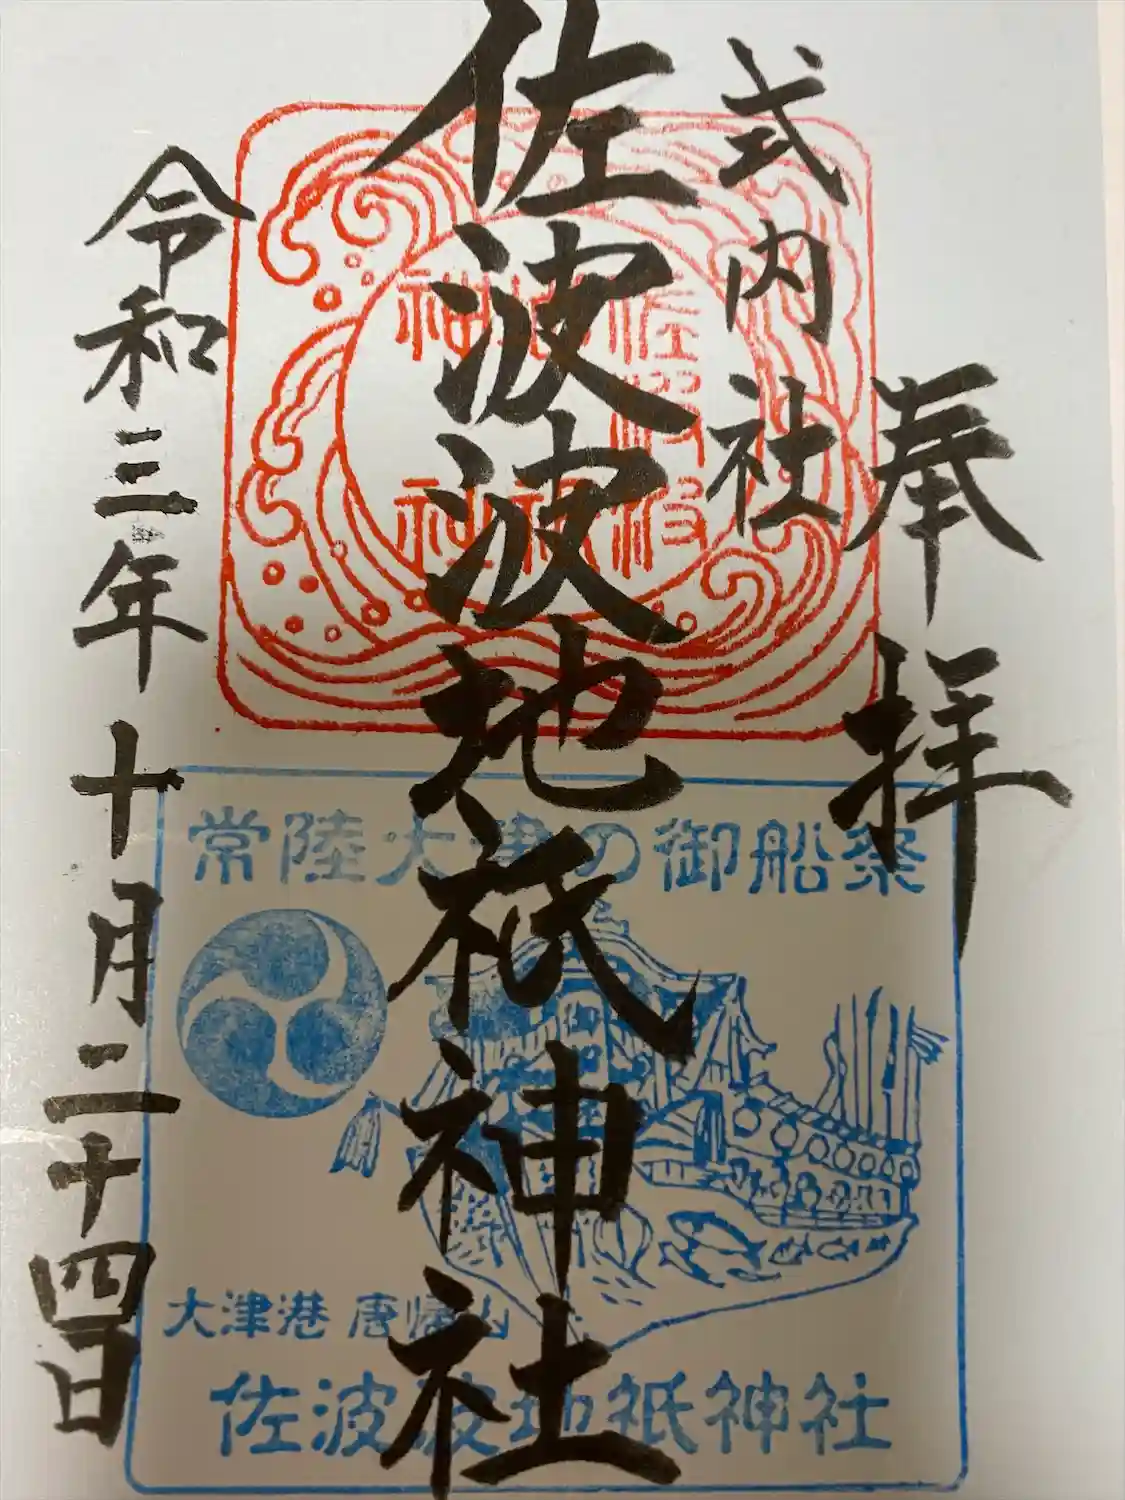 奉拝
式内社
佐波波地祇神社
令和三年十月二十四日
佐波波地祇神社
常陸大津の御船祭
大津港 唐帰山
佐波波地祇神社